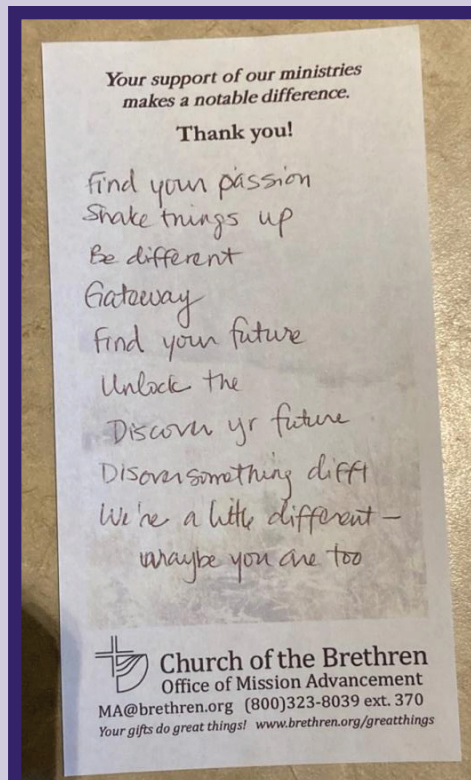 Your support of our ministries
makes a notable difference.
Thank you!
Find your passion
Shake things up
Be different
Gateway
Find your future
Unlock the
Discover yr future
Disover something difft
We're a little different –
maybe you are too
Church of the Brethren
Office of Mission Advancement
MA@brethren.org (800)323-8039 ext. 370
Your gifts do great things! www.brethren.org/greatthings